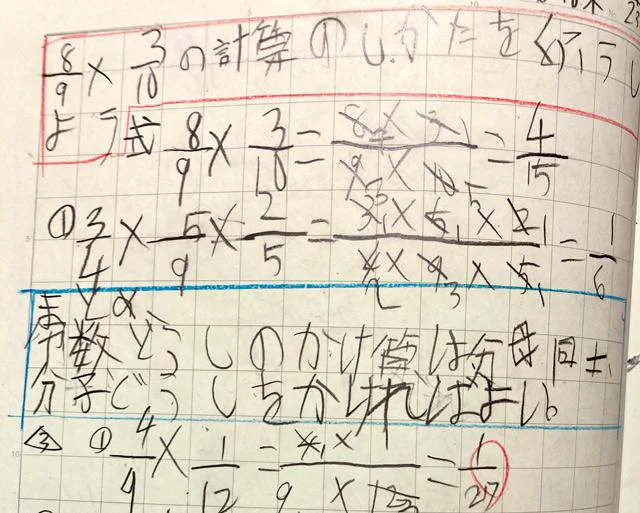 8/9 × 3/10 の計算のしかたを
よう 式 8/9 × 3/10 = 8×3/9×10 = 4/15
① 3/4 × 5/9 × 2/5 = 3×5×2/4×9×5 = 1/6
まとめ
分数どうしのかけ算は分母同士
分子どうしをかければよい
③ ① 4/9 × 1/12 = 4×1/9×12 = 1/27